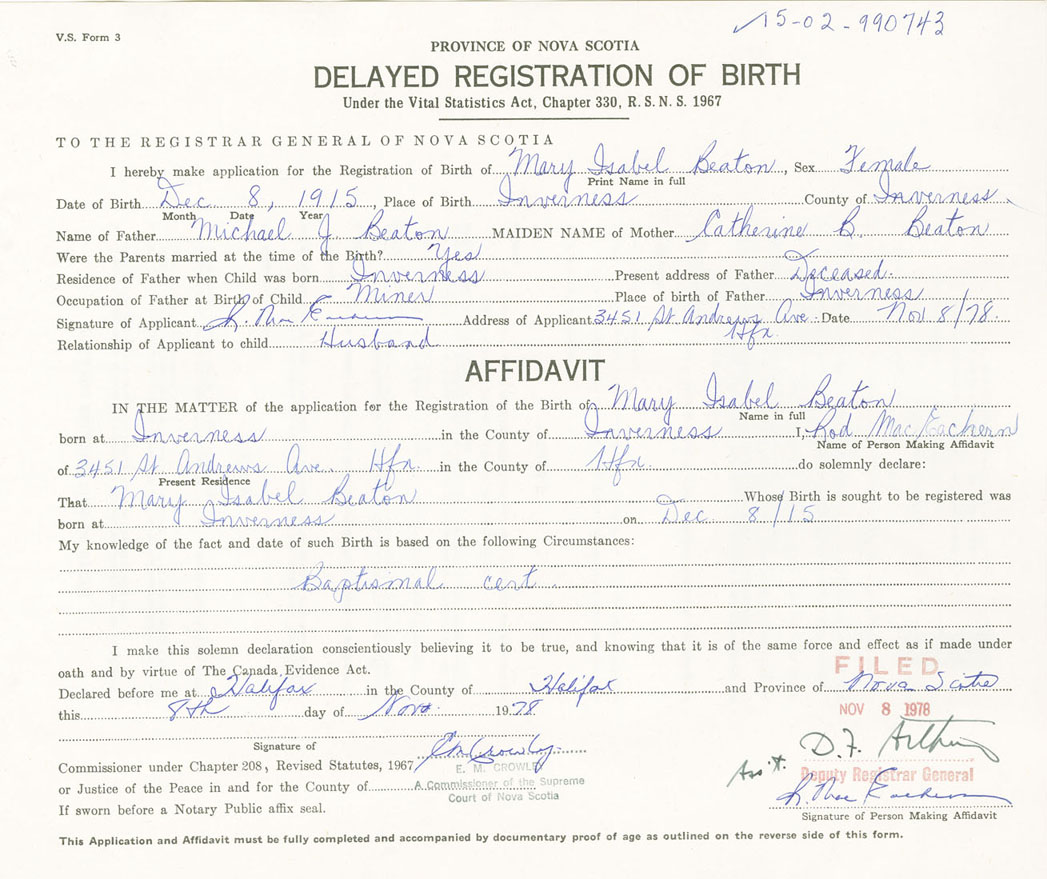 15-02-990743
V.S. Form 3
PROVINCE OF NOVA SCOTIA
DELAYED REGISTRATION OF BIRTH
Under the Vital Statistics Act, Chapter 330, R. S. N. S. 1967
TO THE REGISTRAR GENERAL OF NOVA SCOTIA
I hereby make application for the Registration of Birth of Mary Isabel Beaton, Sex Female
Print Name in full
Date of Birth Dec 8, 1915, Place of Birth Inverness County of Inverness
Month Date Year
Name of Father Michael J Beaton MAIDEN NAME of Mother Catherine B. Beaton
Were the Parents married at the time of the Birth? Yes
Residence of Father when Child was born Inverness Present address of Father Deceased.
Occupation of Father at Birth of Child Miner Place of birth of Father Inverness
Signature of Applicant R. MacEachern Address of Applicant 3451 St Andrews Ave. Date Nov 8/78.
Hfx.
Relationship of Applicant to child Husband
AFFIDAVIT
IN THE MATTER of the application for the Registration of the Birth of Mary Isabel Beaton
Name in full
born at Inverness in the County of Inverness I, Rod MacEachern
Name of Person Making Affidavit
of 3451 St Andrews Ave. Hfx. in the County of Hfx. do solemnly declare:
Present Residence
That Mary Isabel Beaton Whose Birth is sought to be registered was
born at Inverness on Dec 8/15
My knowledge of the fact and date of such Birth is based on the following Circumstances:
Baptismal cert
I make this solemn declaration conscientiously believing it to be true, and knowing that it is of the same force and effect as if made under
oath and by virtue of The Canada Evidence Act.
FILED
Declared before me at Halifax in the County of Halifax and Province of Nova Scotia
this 8th day of Nov. 1978
NOV 8 1978
Signature of
EM Crowley
D. F. Arthur
Commissioner under Chapter 208, Revised Statutes, 1967
E. M. CROWLEY
Ass't. Deputy Registrar General
or Justice of the Peace in and for the County of
A Commissioner of the Supreme
Court of Nova Scotia
R. MacEachern
If sworn before a Notary Public affix seal.
Signature of Person Making Affidavit
This Application and Affidavit must be fully completed and accompanied by documentary proof of age as outlined on the reverse side of this form.